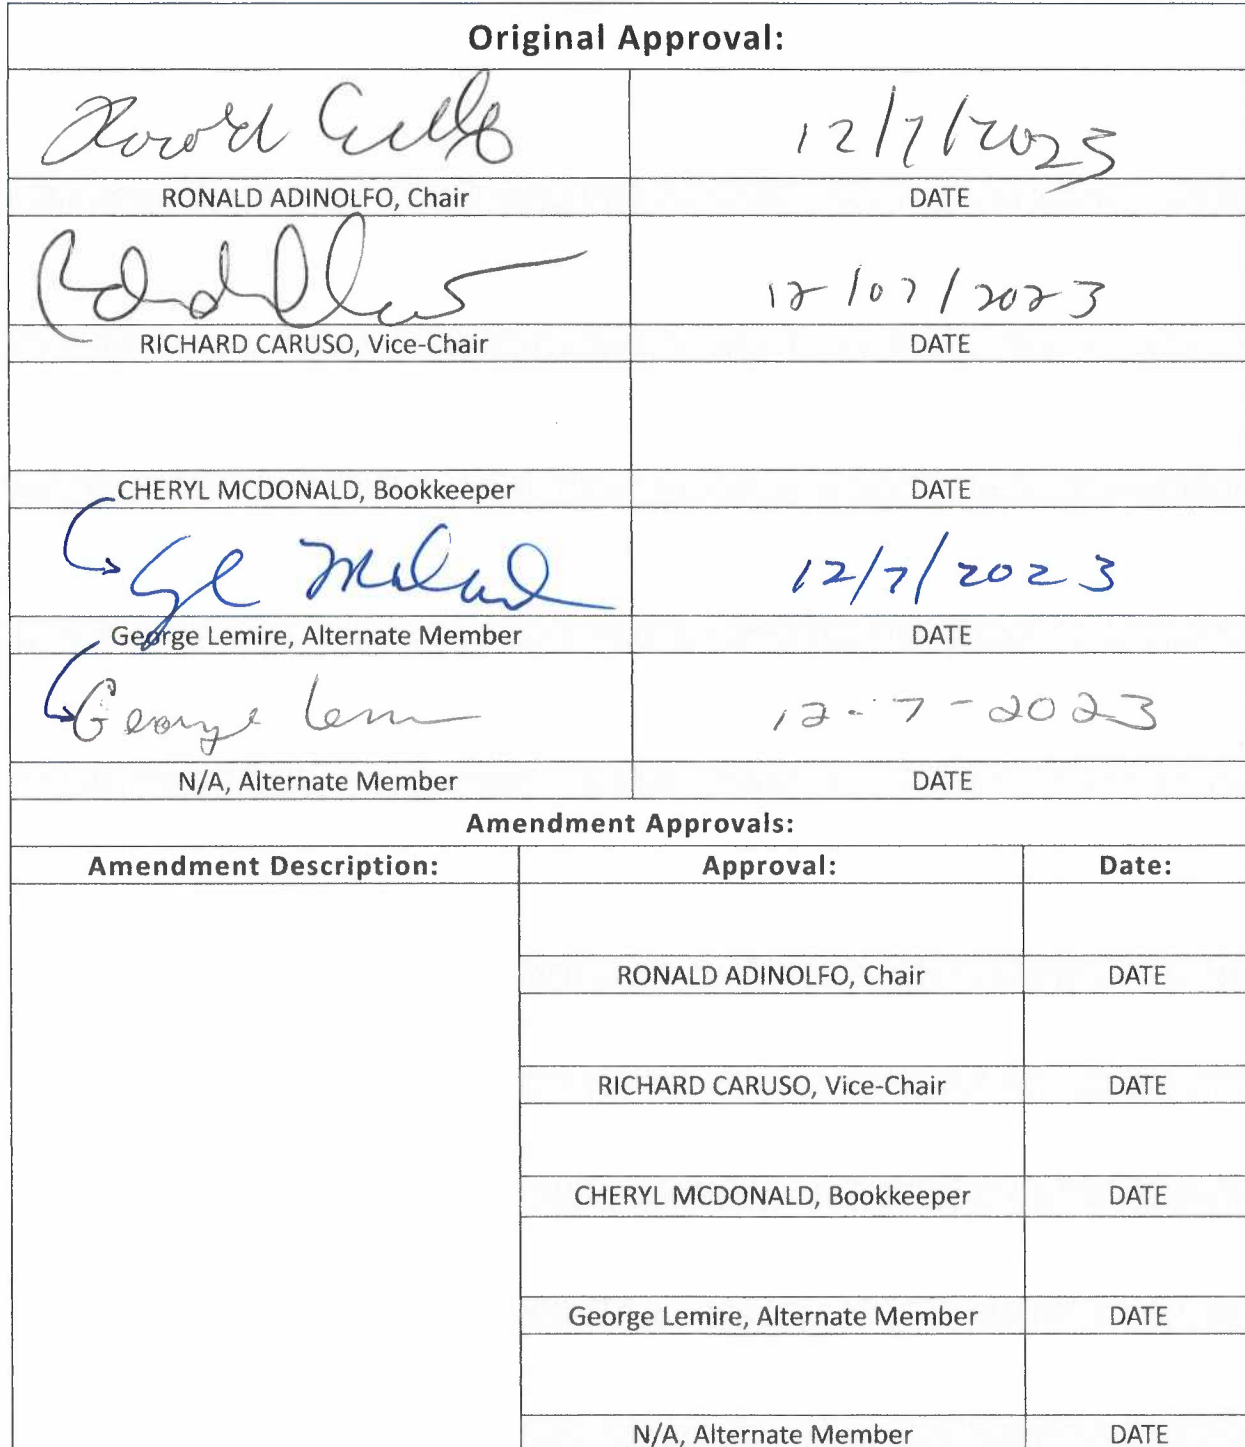 Original Approval:
12/7/2023
RONALD ADINOLFO, Chair DATE
12/07/2023
RICHARD CARUSO, Vice-Chair DATE
CHERYL MCDONALD, Bookkeeper DATE
12/7/2023
George Lemire, Alternate Member DATE
George 12-7-2023
N/A, Alternate Member DATE
Amendment Approvals:
Amendment Description: Approval: Date:
RONALD ADINOLFO, Chair DATE
RICHARD CARUSO, Vice-Chair DATE
CHERYL MCDONALD, Bookkeeper DATE
George Lemire, Alternate Member DATE
N/A, Alternate Member DATE